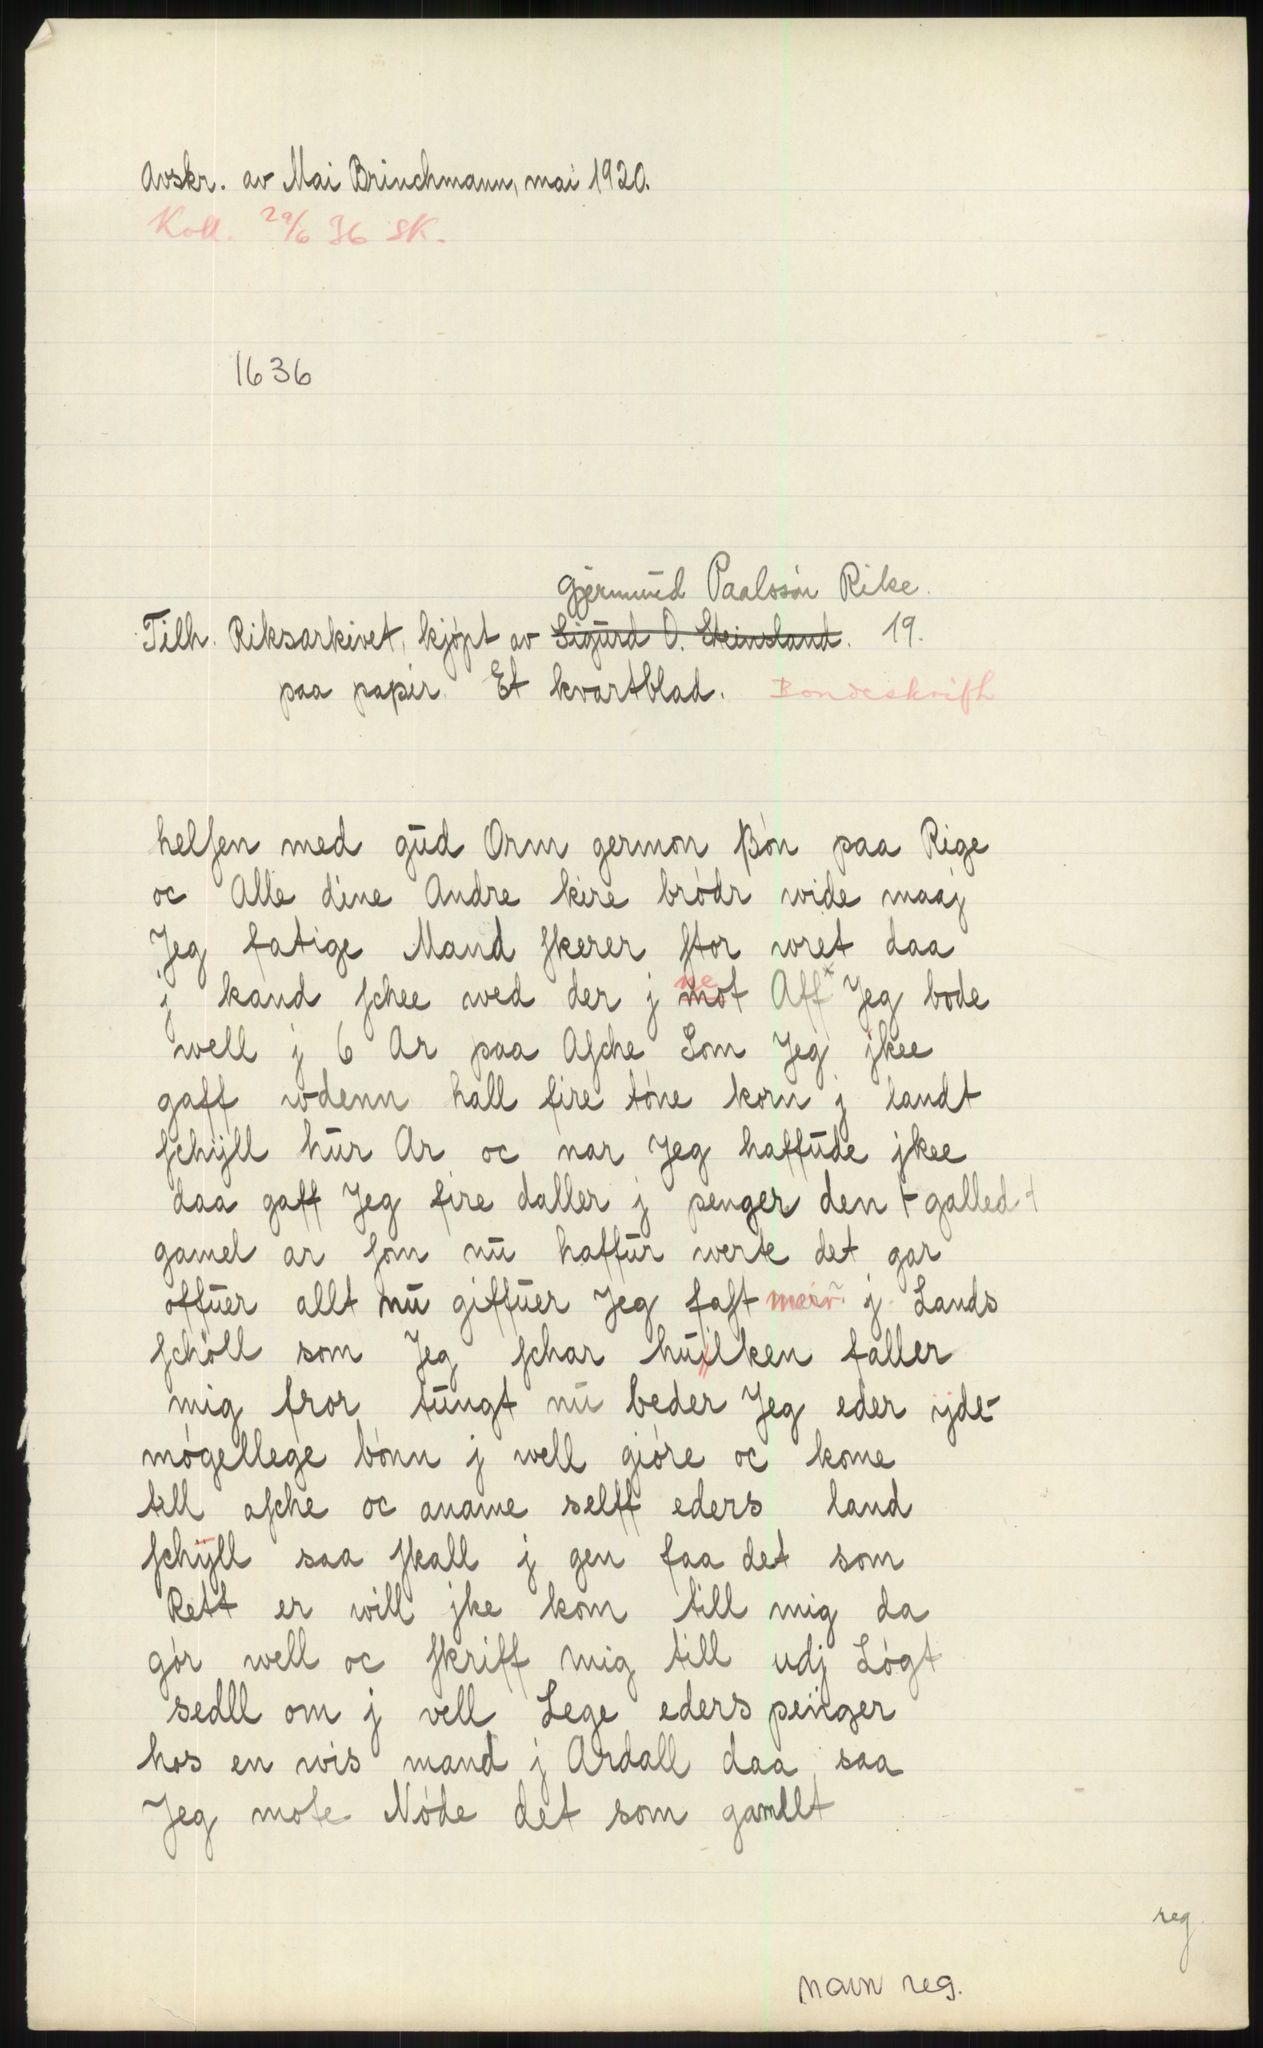 Avskr. av Mai Brinchmann, mai 1920.
Koll. 29/6 36 SK.
1636
Gjermund Paalssøn Rike.
Tilh. Riksarkivet, kjøpt av Sigurd O. Steinsland. 19.
paa papir. Et kvartblad. Bondeskrift
helsen med gud Orm germon ßøn paa Rige
oc Alle dine Andre kire brødr wide maaj
Jeg fatige Mand skerer stor wret daa
j kand schee wed der j mot Aff* Jeg bode
ne
well j 6 Ar paa Asche Som Jeg jkee
gaff wdenn hall fire tøne korn j landt
schÿll hur Ar oc nar Jeg haffude jkee
daa gaff Jeg fire daller j penger den + galled +
gamel ar som nu haffur werte det gar
offuer allt nu giffuer Jeg fast meir j Lands
schøll som Jeg schar huilken faller
mig fror tungt nu beder Jeg eder ijde-
møgellege bønn j well giøre oc kome
till asche oc aname selff eders land
schÿll saa skall j gen faa det som
Rett er will jke kom till mig da
gør well oc skriff mig till udj Løgt
sedll om j vell Lege eders penger
hos en wis mand j Ardall daa saa
Jeg mote Nøde det som gamllt
reg.
navn reg.